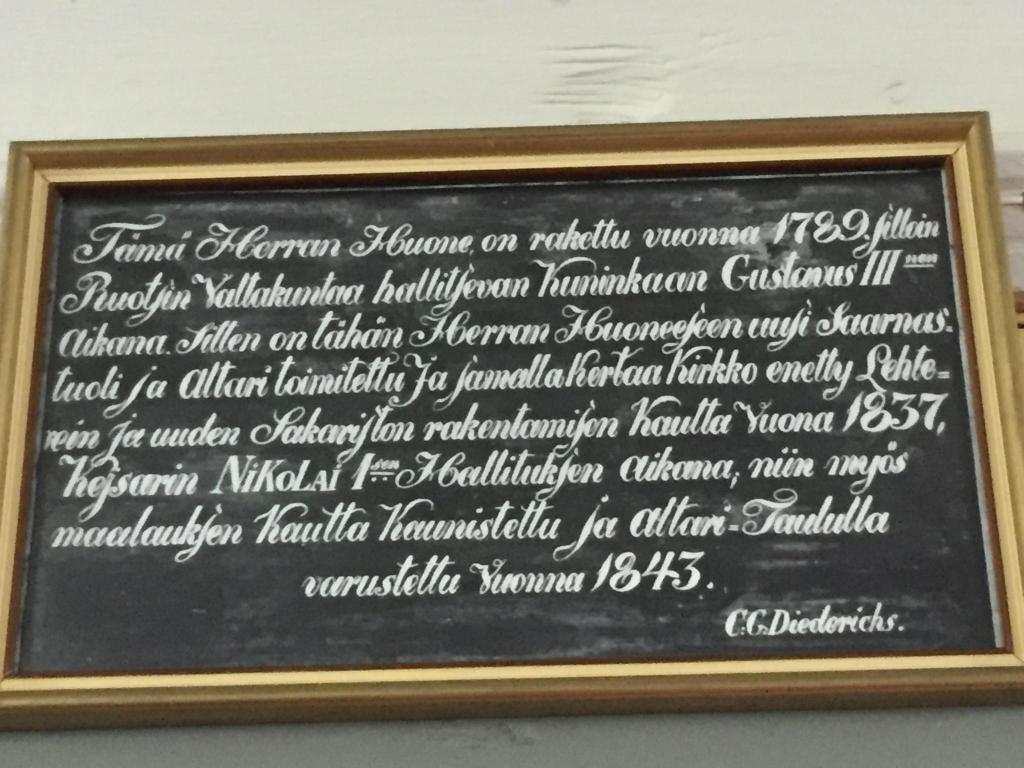 Tämä Herran Huone, on rakettu vuonna 1789, silloin
Ruotsin Valtakuntaa hallitsevan Kuninkaan Gustavus III nen
Aikana. Sitten on tähän Herran Huoneeseen uusi Saarnas=
tuoli ja Altari toimitettu Ja samalla kertaa Kirkko enetty Lehte=
rein ja uuden Sakariston rakentamisen Kautta Vuona 1837,
Kejsarin NiKOLAI 1sen Hallituksen aikana, niin myös
maalauksen Kautta Kaunistettu ja Altari=Taululla
varustettu Vuonna 1843.
C.G. Diederichs.